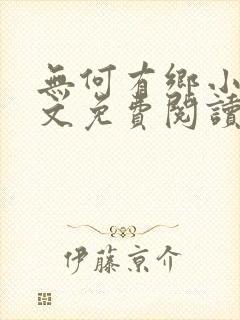 無何有鄉小
文免費閱讀
伊藤京介